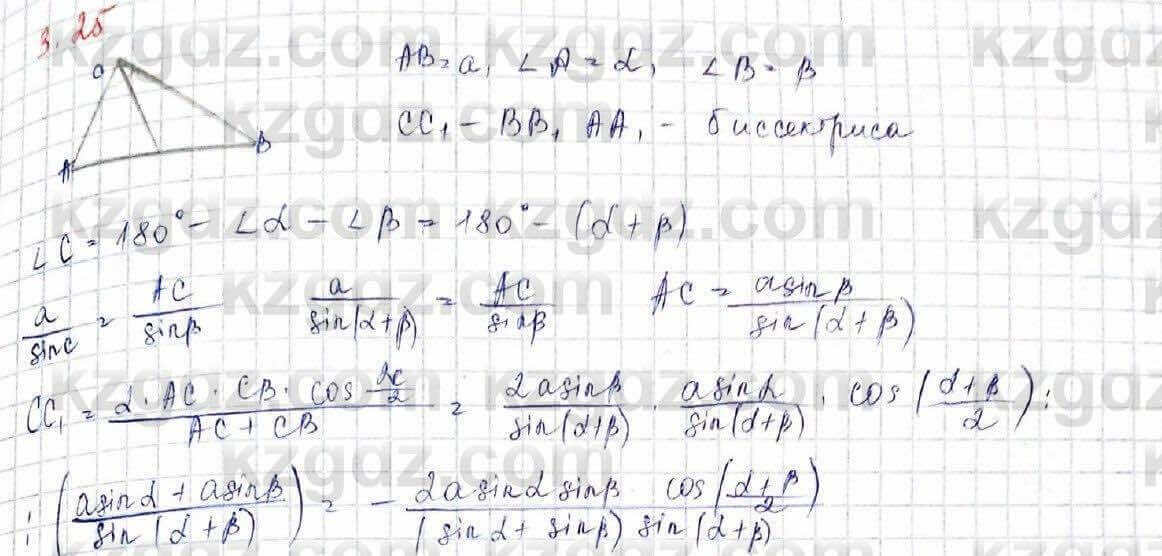 3.25
C
A
B
AB = a, ∠A = α, ∠B = β
CC₁ - BB₁ AA₁ - биссектриса
∠C = 180° - ∠α - ∠β = 180° - (α + β)
a/sin C = AC/sin β    a/sin(α+β) = AC/sin β    AC = a sin β/sin(α+β)
CC₁ = 2·AC·CB·cos ∠C/2 / AC + CB = 2a sin β/sin(α+β) · a sin α/sin(α+β) · cos(α+β/2) :
: (a sin α + a sin β/sin(α+β)) = - 2a sin α sin β cos(α+β/2)/(sin α + sin β) sin(α+β)
kzgdz.com